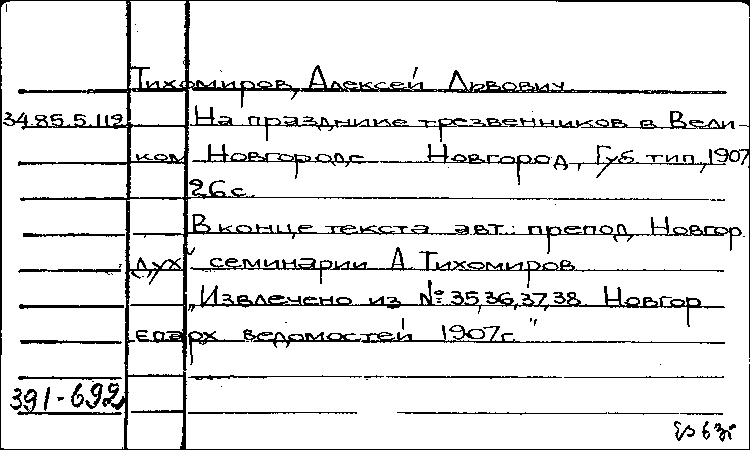 Тихомиров, Алексей Львович
34.85.5.112 На празднике трезвенников в Вели-
ком Новгороде Новгород, Губ. тип., 1907
26 с.
В конце текста авт.: препод. Новгор.
дух. семинарии А. Тихомиров
„Извлечено из №: 35,36,37,38 Новгор
епарх ведомостей 1907г."
391-692